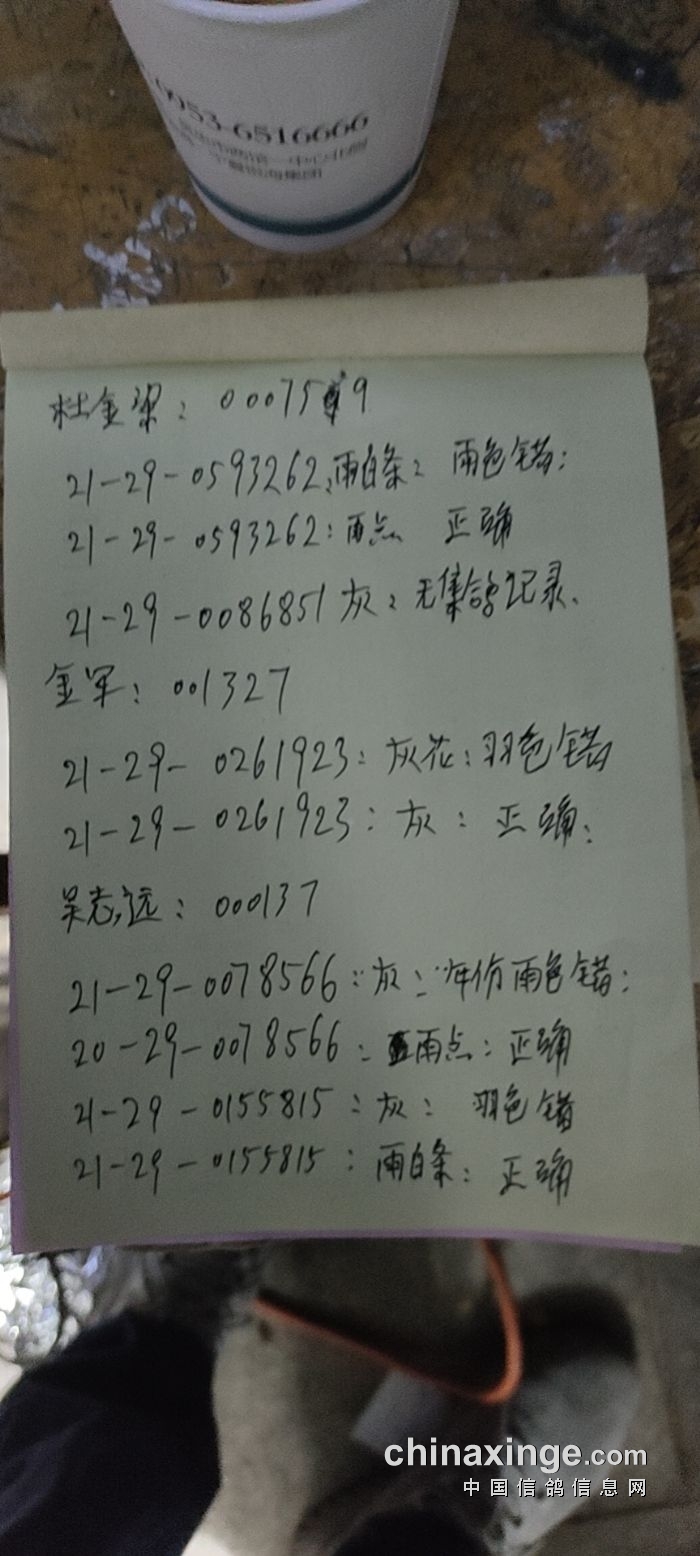 0953-6516666
杜金梁：0007599
21-29-0593262：雨白条：雨色错：
21-29-0593262：雨点 正确
21-29-0086851 灰：无集鸽记录、
金军：001327
21-29-0261923：灰花：羽色错
21-29-0261923：灰：正确：
吴志远：000137
21-29-0078566：灰：年份雨色错：
20-29-0078566：雨点：正确
21-29-0155815：灰：羽色错
21-29-0155815：雨白条：正确
chinaxinge.com
中国信鸽信息网